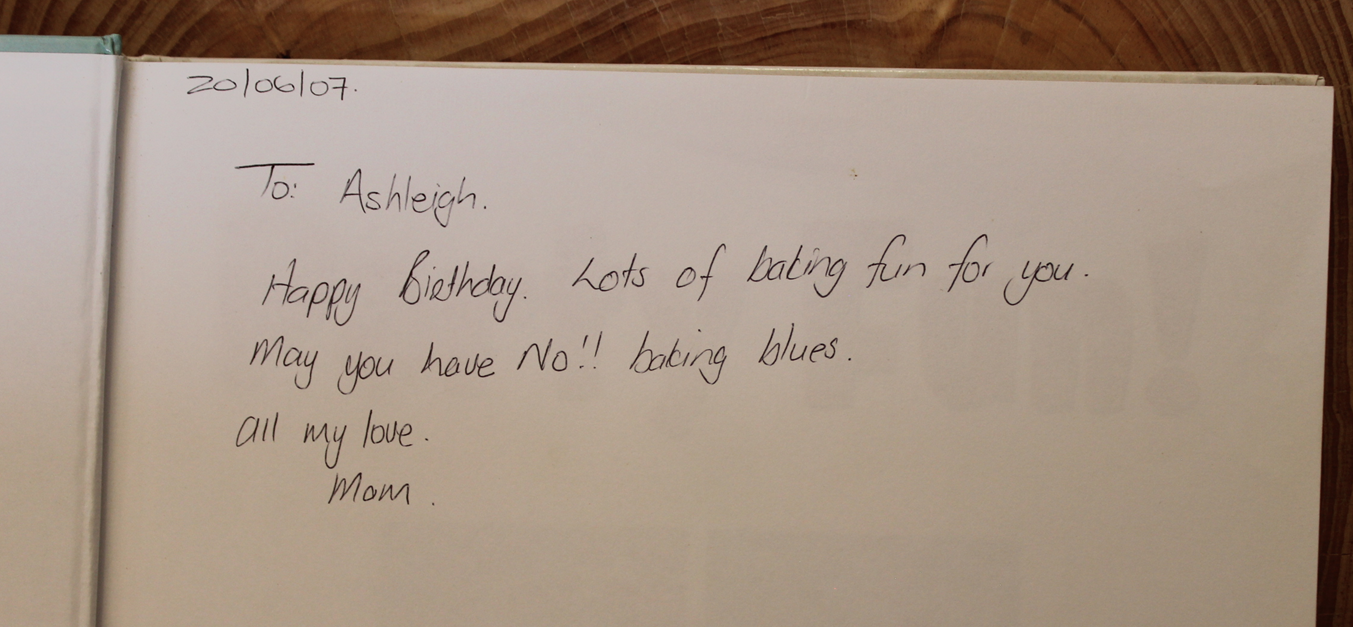 20/06/07.
To: Ashleigh.
Happy Birthday. Lots of baking fun for you.
May you have No!! baking blues.
all my love.
Mom.